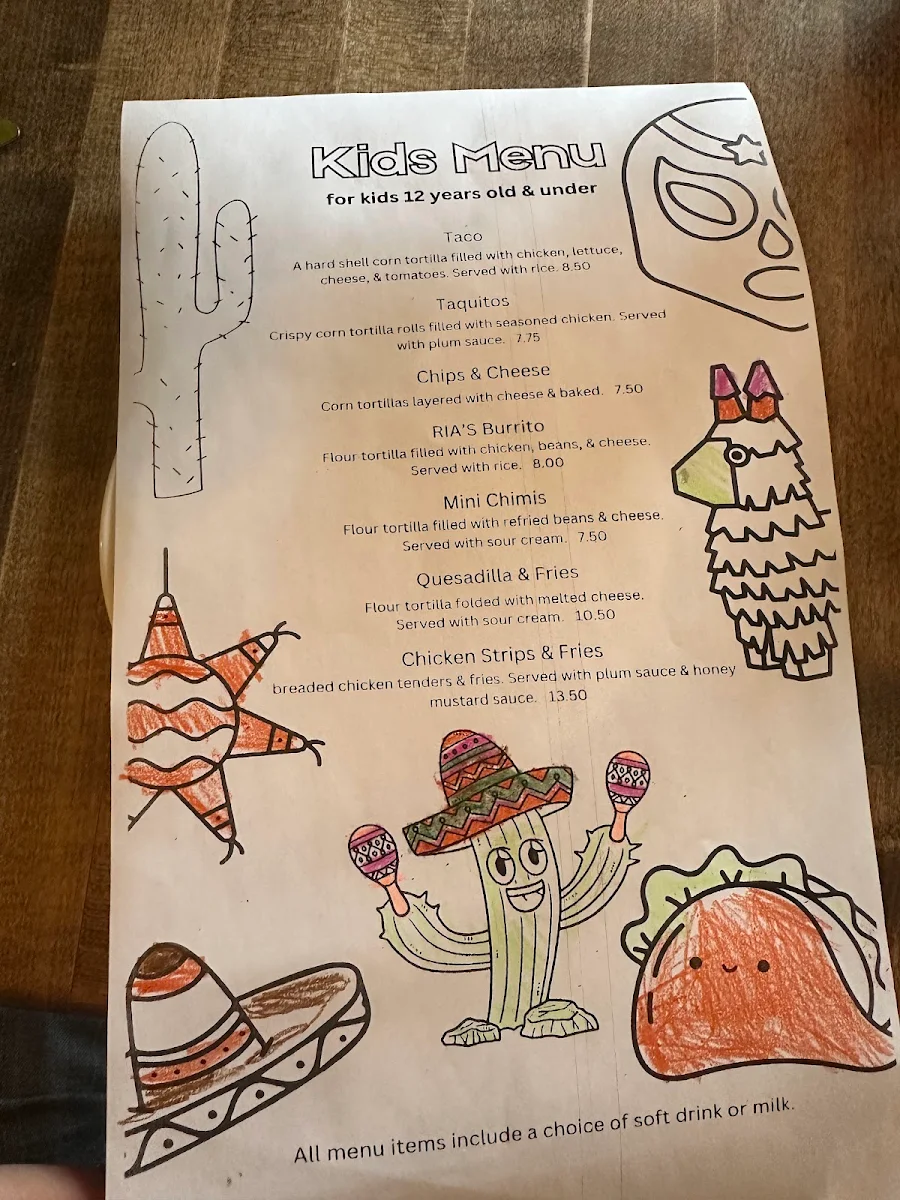 Kids Menu
for kids 12 years old & under
Taco
A hard shell corn tortilla filled with chicken, lettuce,
cheese, & tomatoes. Served with rice. 8.50
Taquitos
Crispy corn tortilla rolls filled with seasoned chicken. Served
with plum sauce. 7.75
Chips & Cheese
Corn tortillas layered with cheese & baked. 7.50
RIA'S Burrito
Flour tortilla filled with chicken, beans, & cheese.
Served with rice. 8.00
Mini Chimis
Flour tortilla filled with refried beans & cheese.
Served with sour cream. 7.50
Quesadilla & Fries
Flour tortilla folded with melted cheese.
Served with sour cream. 10.50
Chicken Strips & Fries
breaded chicken tenders & fries. Served with plum sauce & honey
mustard sauce. 13.50
All menu items include a choice of soft drink or milk.